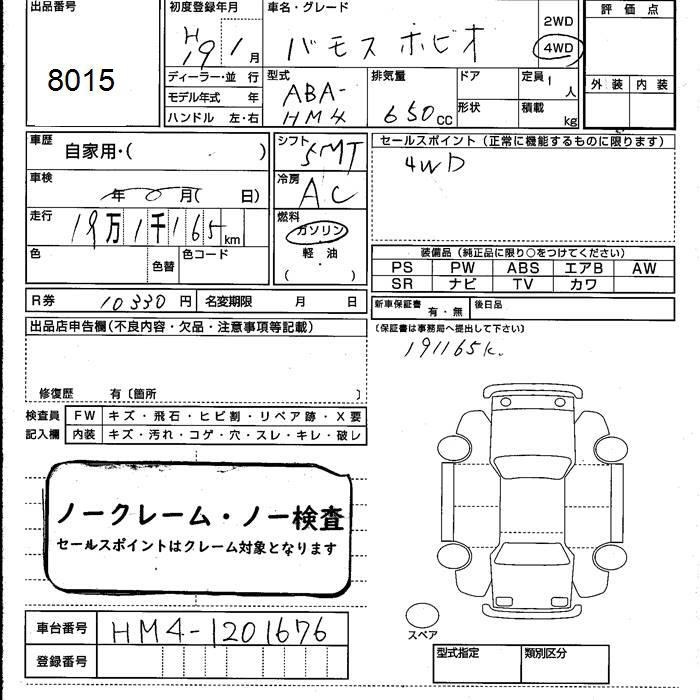 出品番号
8015
初度登録年月
H19 1月
車名・グレード
バモス ホビオ
2WD
4WD
評価点
外装 内装
ディーラー・並 行
モデル年式 年
ハンドル 左・右
型式
ABA-
HM4
排気量
650cc
ドア
形状
定員 人
積載 kg
車歴
自家用・( )
シフト
5MT
車検
年 月( 日)
冷房
AC
走行
19万1千165km
燃料
ガソリン
軽油
( )
色
色替
色コード
セールスポイント(正常に機能するものに限ります)
4WD
装備品(純正品に限り○をつけてください)
PS PW ABS エアB AW
SR ナビ TV カワ
R券 10330円 名変期限 月 日
新車保証書 有・無 後日品
(保証書は事務局へ提出して下さい)
191165K.
出品店申告欄(不良内容・欠品・注意事項等記載)
修復歴 有〔箇所 〕
検査員 FW キズ・飛石・ヒビ割・リペア跡・X要
記入欄 内装 キズ・汚れ・コゲ・穴・スレ・キレ・破レ
ノークレーム・ノー検査
セールスポイントはクレーム対象となります
車台番号 HM4-1201676
登録番号
スペア
型式指定 類別区分